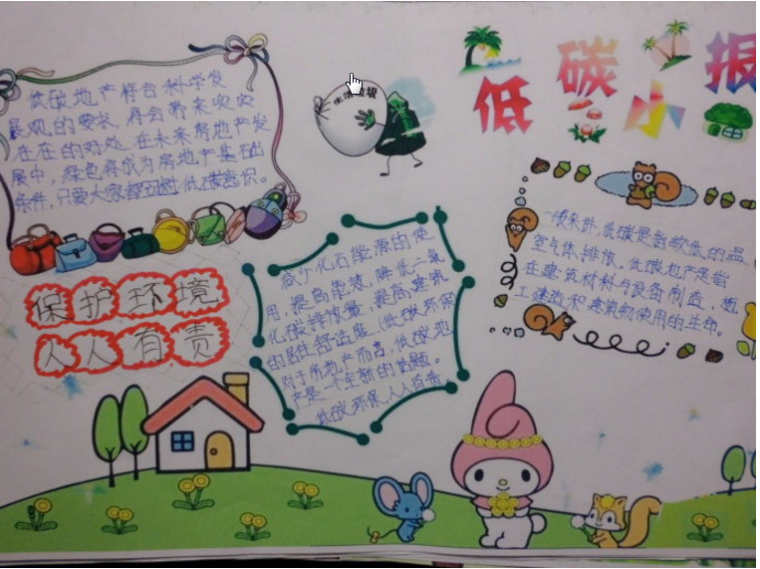 低碳小报
低碳地产符合科学发
展观的要求,将会带来实实
在在的好处。在未来房地产发
展中,绿色将成为房地产基础
条件,只要大家都树立低碳意识。
保护环境
人人有责
减少化石能源的使
用,提高能效,降低二氧
化碳排放量,提高建筑
的居住舒适度。低碳环保
对于房地产而言,低碳地
产是一个全新的话题。
低碳环保人人有责
一般来讲,低碳是指较低的温
室气体排放,低碳地产是指
在建筑材料与设备制造,施
工建造和建筑物使用的生命。